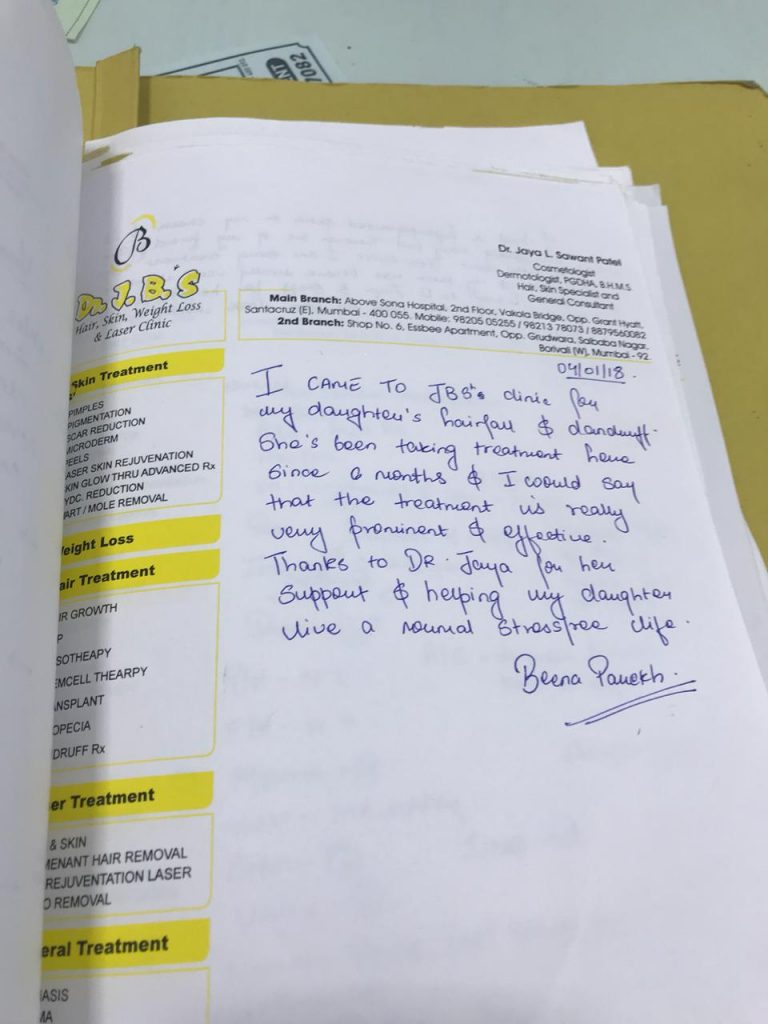 7082
B
Dr. J. B.'S
Hair, Skin, Weight Loss
& Laser Clinic
Dr. Jaya L. Sawant Patel
Cosmetologist
Dermotologist, PGDHA, B.H.M.S.
Hair, Skin Specialist and
General Consultant
Main Branch: Above Sona Hospital, 2nd Floor, Vakola Bridge, Opp. Grant Hyatt,
Santacruz (E), Mumbai - 400 055. Mobile: 98205 05255 / 98213 78073 / 8879560082
2nd Branch: Shop No. 6, Essbee Apartment, Opp. Grudwara, Saibaba Nagar,
Borivali (W), Mumbai - 92.
04/01/18.
I CAME TO JBS's clinic for
my daughter's hairfall & dandruff.
She's been taking treatment here
Since 6 months & I coould say
that the treatment is really
very prominent & effective.
Thanks to DR. Jaya for her
Support & helping my daughter
live a normal Stressfree life.
Beena Parekh.
Skin Treatment
PIMPLES
PIGMENTATION
SCAR REDUCTION
MICRODERM
PEELS
ASER SKIN REJUVENATION
KIN GLOW THRU ADVANCED Rx
YDC. REDUCTION
ART / MOLE REMOVAL
eight Loss
air Treatment
IR GROWTH
P
SOTHEAPY
EMCELL THEARPY
ANSPLANT
OPECIA
DRUFF Rx
er Treatment
& SKIN
MENANT HAIR REMOVAL
REJUVENTATION LASER
O REMOVAL
eral Treatment
IASIS
MA